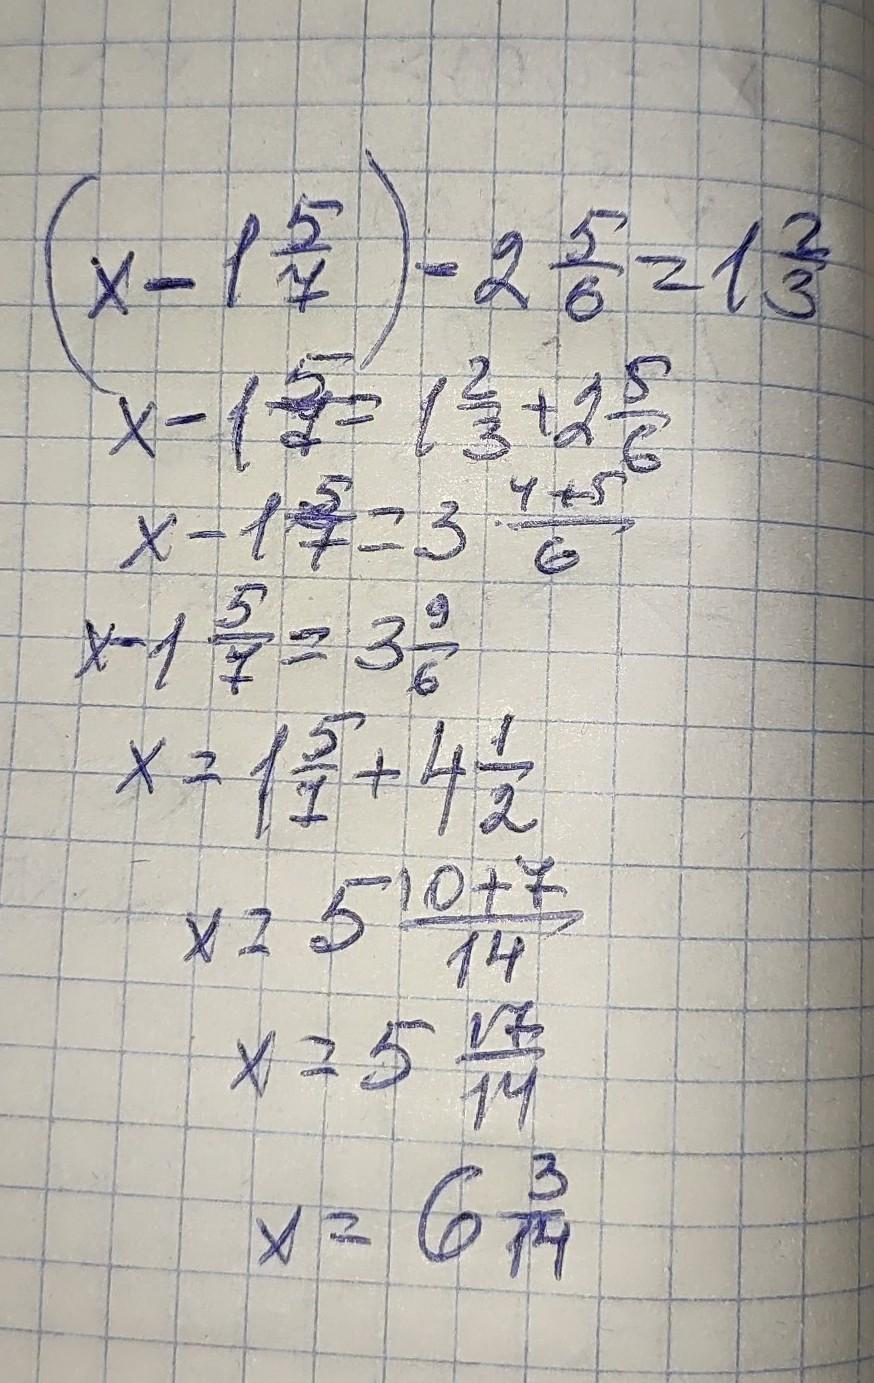 (x - 1 5/7) - 2 5/6 = 1 2/3
x - 1 5/7 = 1 2/3 + 2 5/6
x - 1 5/7 = 3 4+5/6
x - 1 5/7 = 3 9/6
x = 1 5/7 + 4 1/2
x = 5 10+7/14
x = 5 17/14
x = 6 3/14